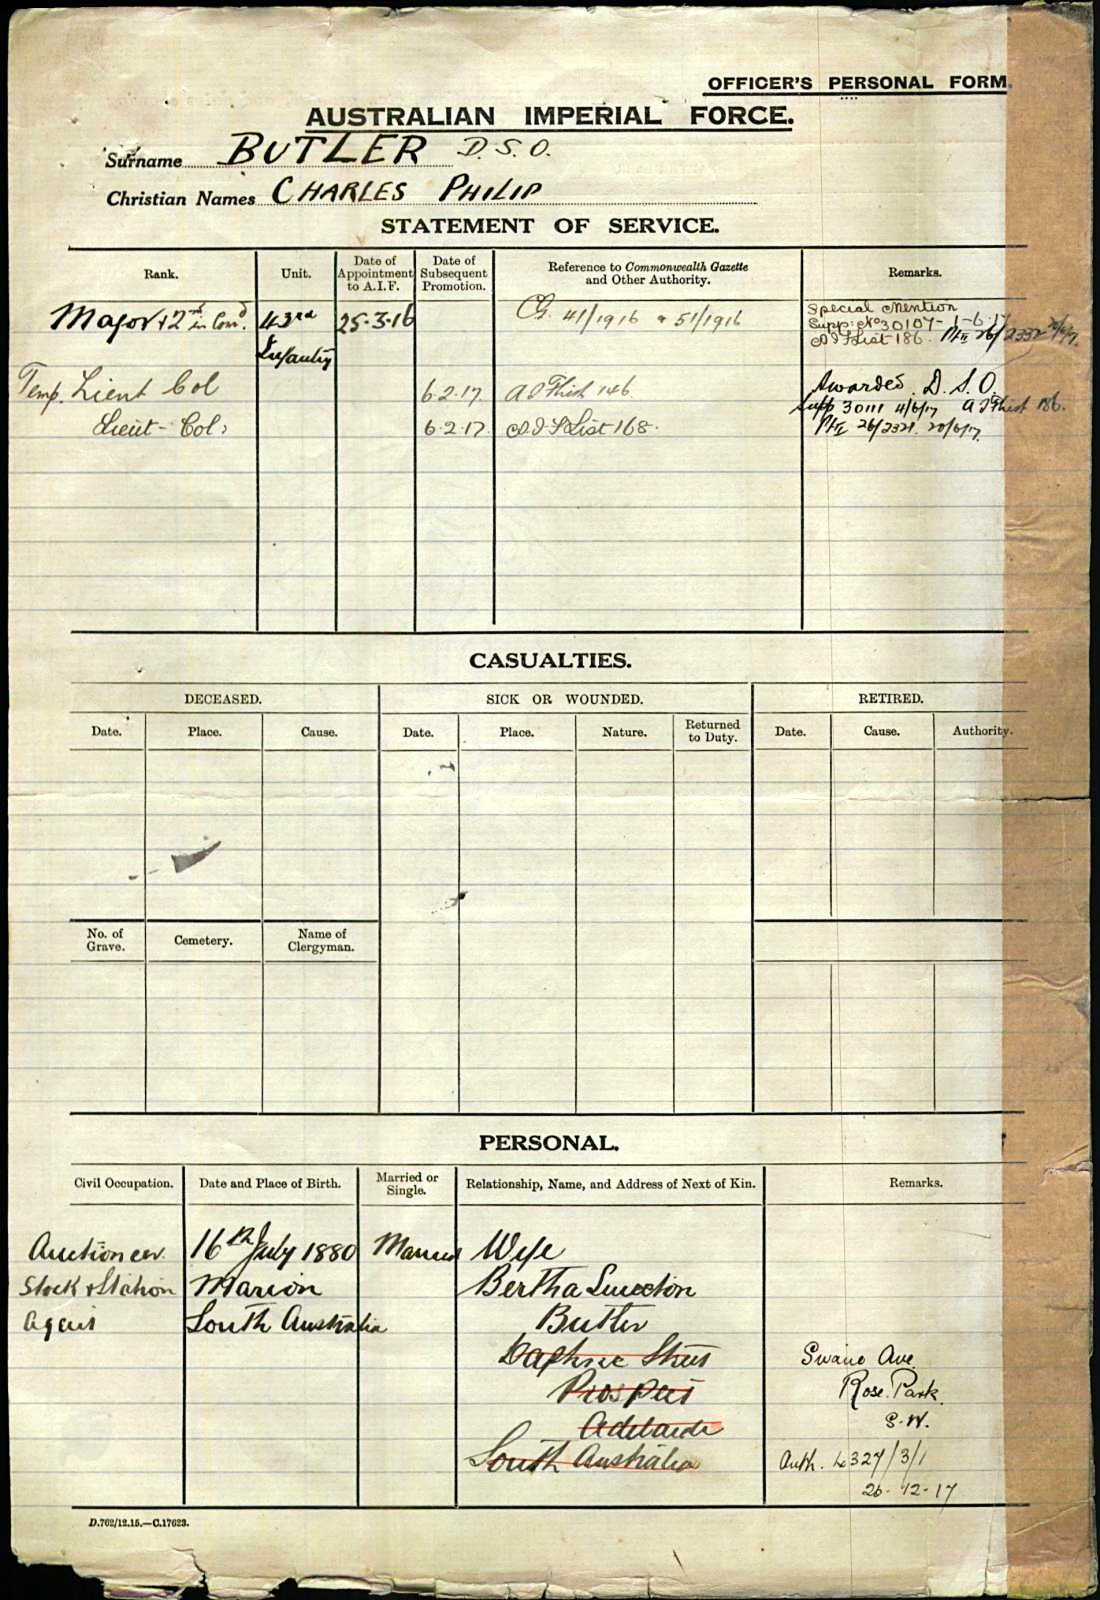 OFFICER'S PERSONAL FORM.
AUSTRALIAN IMPERIAL FORCE.
Surname BUTLER D.S.O.
Christian Names CHARLES PHILIP
STATEMENT OF SERVICE.
Rank. Unit. Date of Appointment to A.I.F. Date of Subsequent Promotion. Reference to Commonwealth Gazette and Other Authority. Remarks.
Major + 2nd in Com'd. 43rd Infantry 25.3.16 CG. 41/1916 & 51/1916 Special Mention
Supp: No 30107 - 1-6-17
AIF List 186. Pt II 26/2332
Temp. Lieut Col 6.2.17. AIF List 146. Awarded D.S.O.
Supp 30111 4/6/17 AIF List 186.
Lieut-Col: 6.2.17. AIF List 168. Pt II 26/2321. 20/6/17.
CASUALTIES.
DECEASED. SICK OR WOUNDED. RETIRED.
Date. Place. Cause. Date. Place. Nature. Returned to Duty. Date. Cause. Authority.
No. of Grave. Cemetery. Name of Clergyman.
PERSONAL.
Civil Occupation. Date and Place of Birth. Married or Single. Relationship, Name, and Address of Next of Kin. Remarks.
Auctioneer 16th July 1880 Married Wife
Stock & Station Marion Bertha
Agent South Australia Butler
Daphne Street
Prospect
Adelaide
South Australia
Ave.
Rose Park.
Auth. 327/3/1
26-12-17
D.762/12.15.—C.17623.